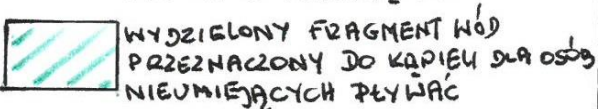 WYDZIELONY FRAGMENT WÓD
PRZEZNACZONY DO KĄPIELI DLA OSÓB
NIEUMIEJĄCYCH PŁYWAĆ